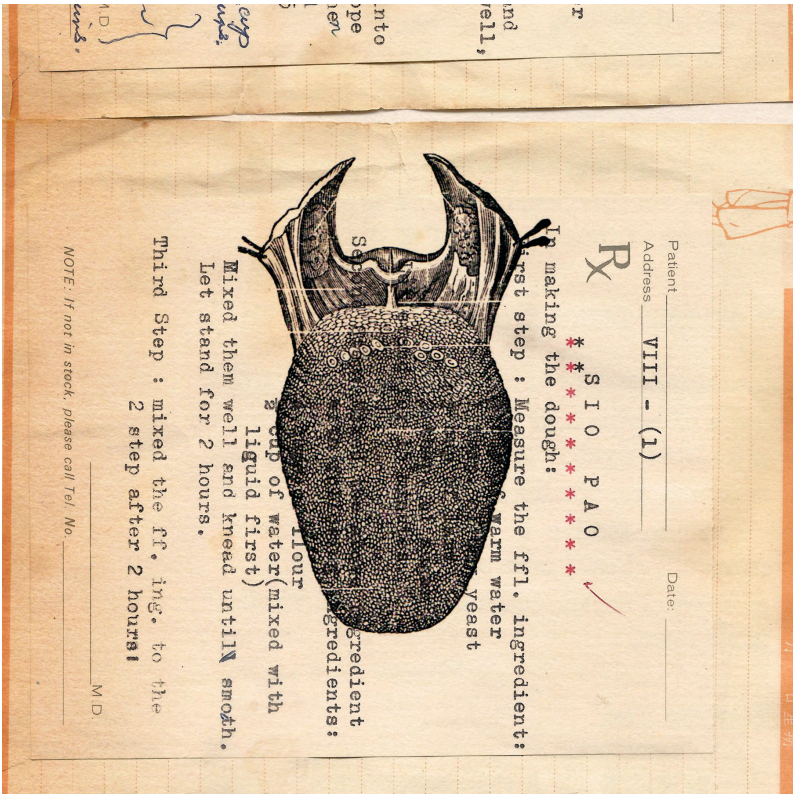 r
and
well,
into
ope
men
cup
cups.
M.D.
cups.
Patient
Date:
Address VIII - (1)
Rx
SIO PAO
**
**********
In making the dough:
irst step : Measure the ffl. ingredient:
warm water
yeast
Sec
gredient
gredients:
flour
2 cup of water(mixed with
liguid first)
Mixed them well and knead until smoth.
Let stand for 2 hours.
Third Step : mixed the ff. ing. to the
2 step after 2 hours:
M.D.
NOTE: If not in stock, please call Tel. No.